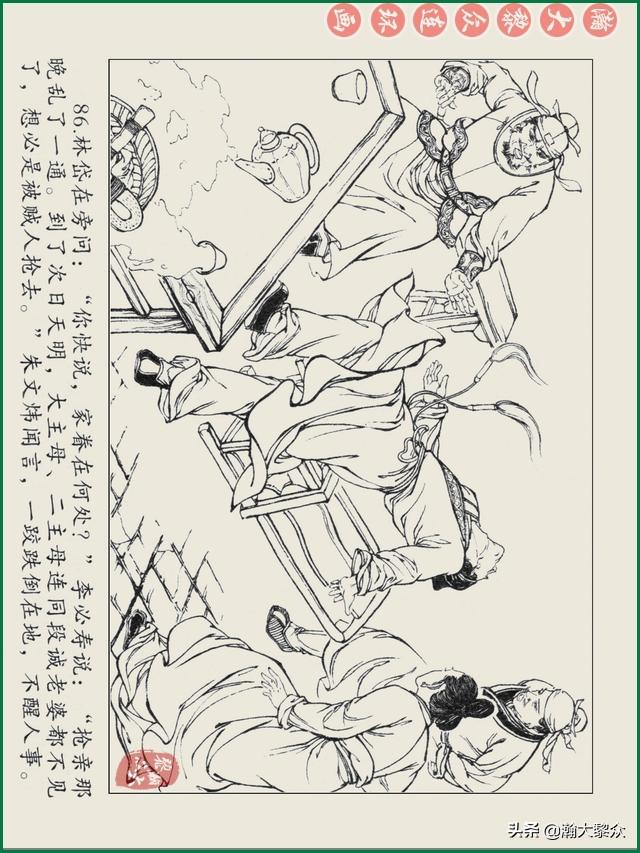 瀚大黎众连环画
86.林岱在旁问：“你快说，家眷在何处？”李必寿说：“抢亲那
晚乱了一通。到了次日天明，大主母、二主母连同段诚老婆都不见
了，想必是被贼人抢去。”朱文炜闻言，一跤跌倒在地，不醒人事。
头条 @瀚大黎众